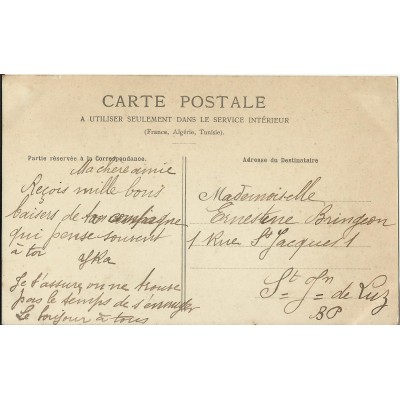 CARTE POSTALE
A UTILISER SEULEMENT DANS LE SERVICE INTÉRIEUR
(France, Algérie, Tunisie).
Partie réservée à la Correspondance.
Ma chère amie
Reçois mille bons
baisers de ta compagne
qui pense souvent
à toi
Yka
Je t'assure on ne trouve
pas le temps de s'ennuyer
Le bonjour à tous
Adresse du Destinataire
Mademoiselle
Ernestine Bringeon
1 Rue St Jacques 1
St Jn de Luz
BP